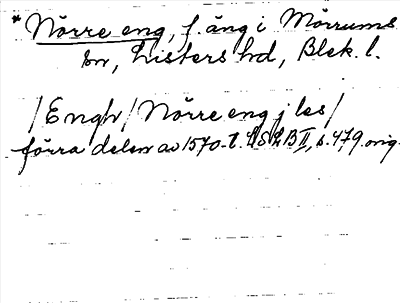 * Nörre eng, f. äng i Mörrums
sn, Listers hd, Blek. l.
/Engh/ Nörre eng j les/
förra delen av 1570-t. LSÄB II, s. 479 orig.